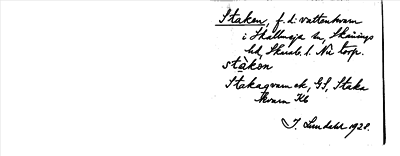 Staken, f. d. vattenkvarn
i Skallmeja sn, Skånings
hd, Skarab. l. Nu torp.
stàkɷn
Stakaqvarn ek, GS, Staka
kvarn Kb
J. Lundahl 1928.